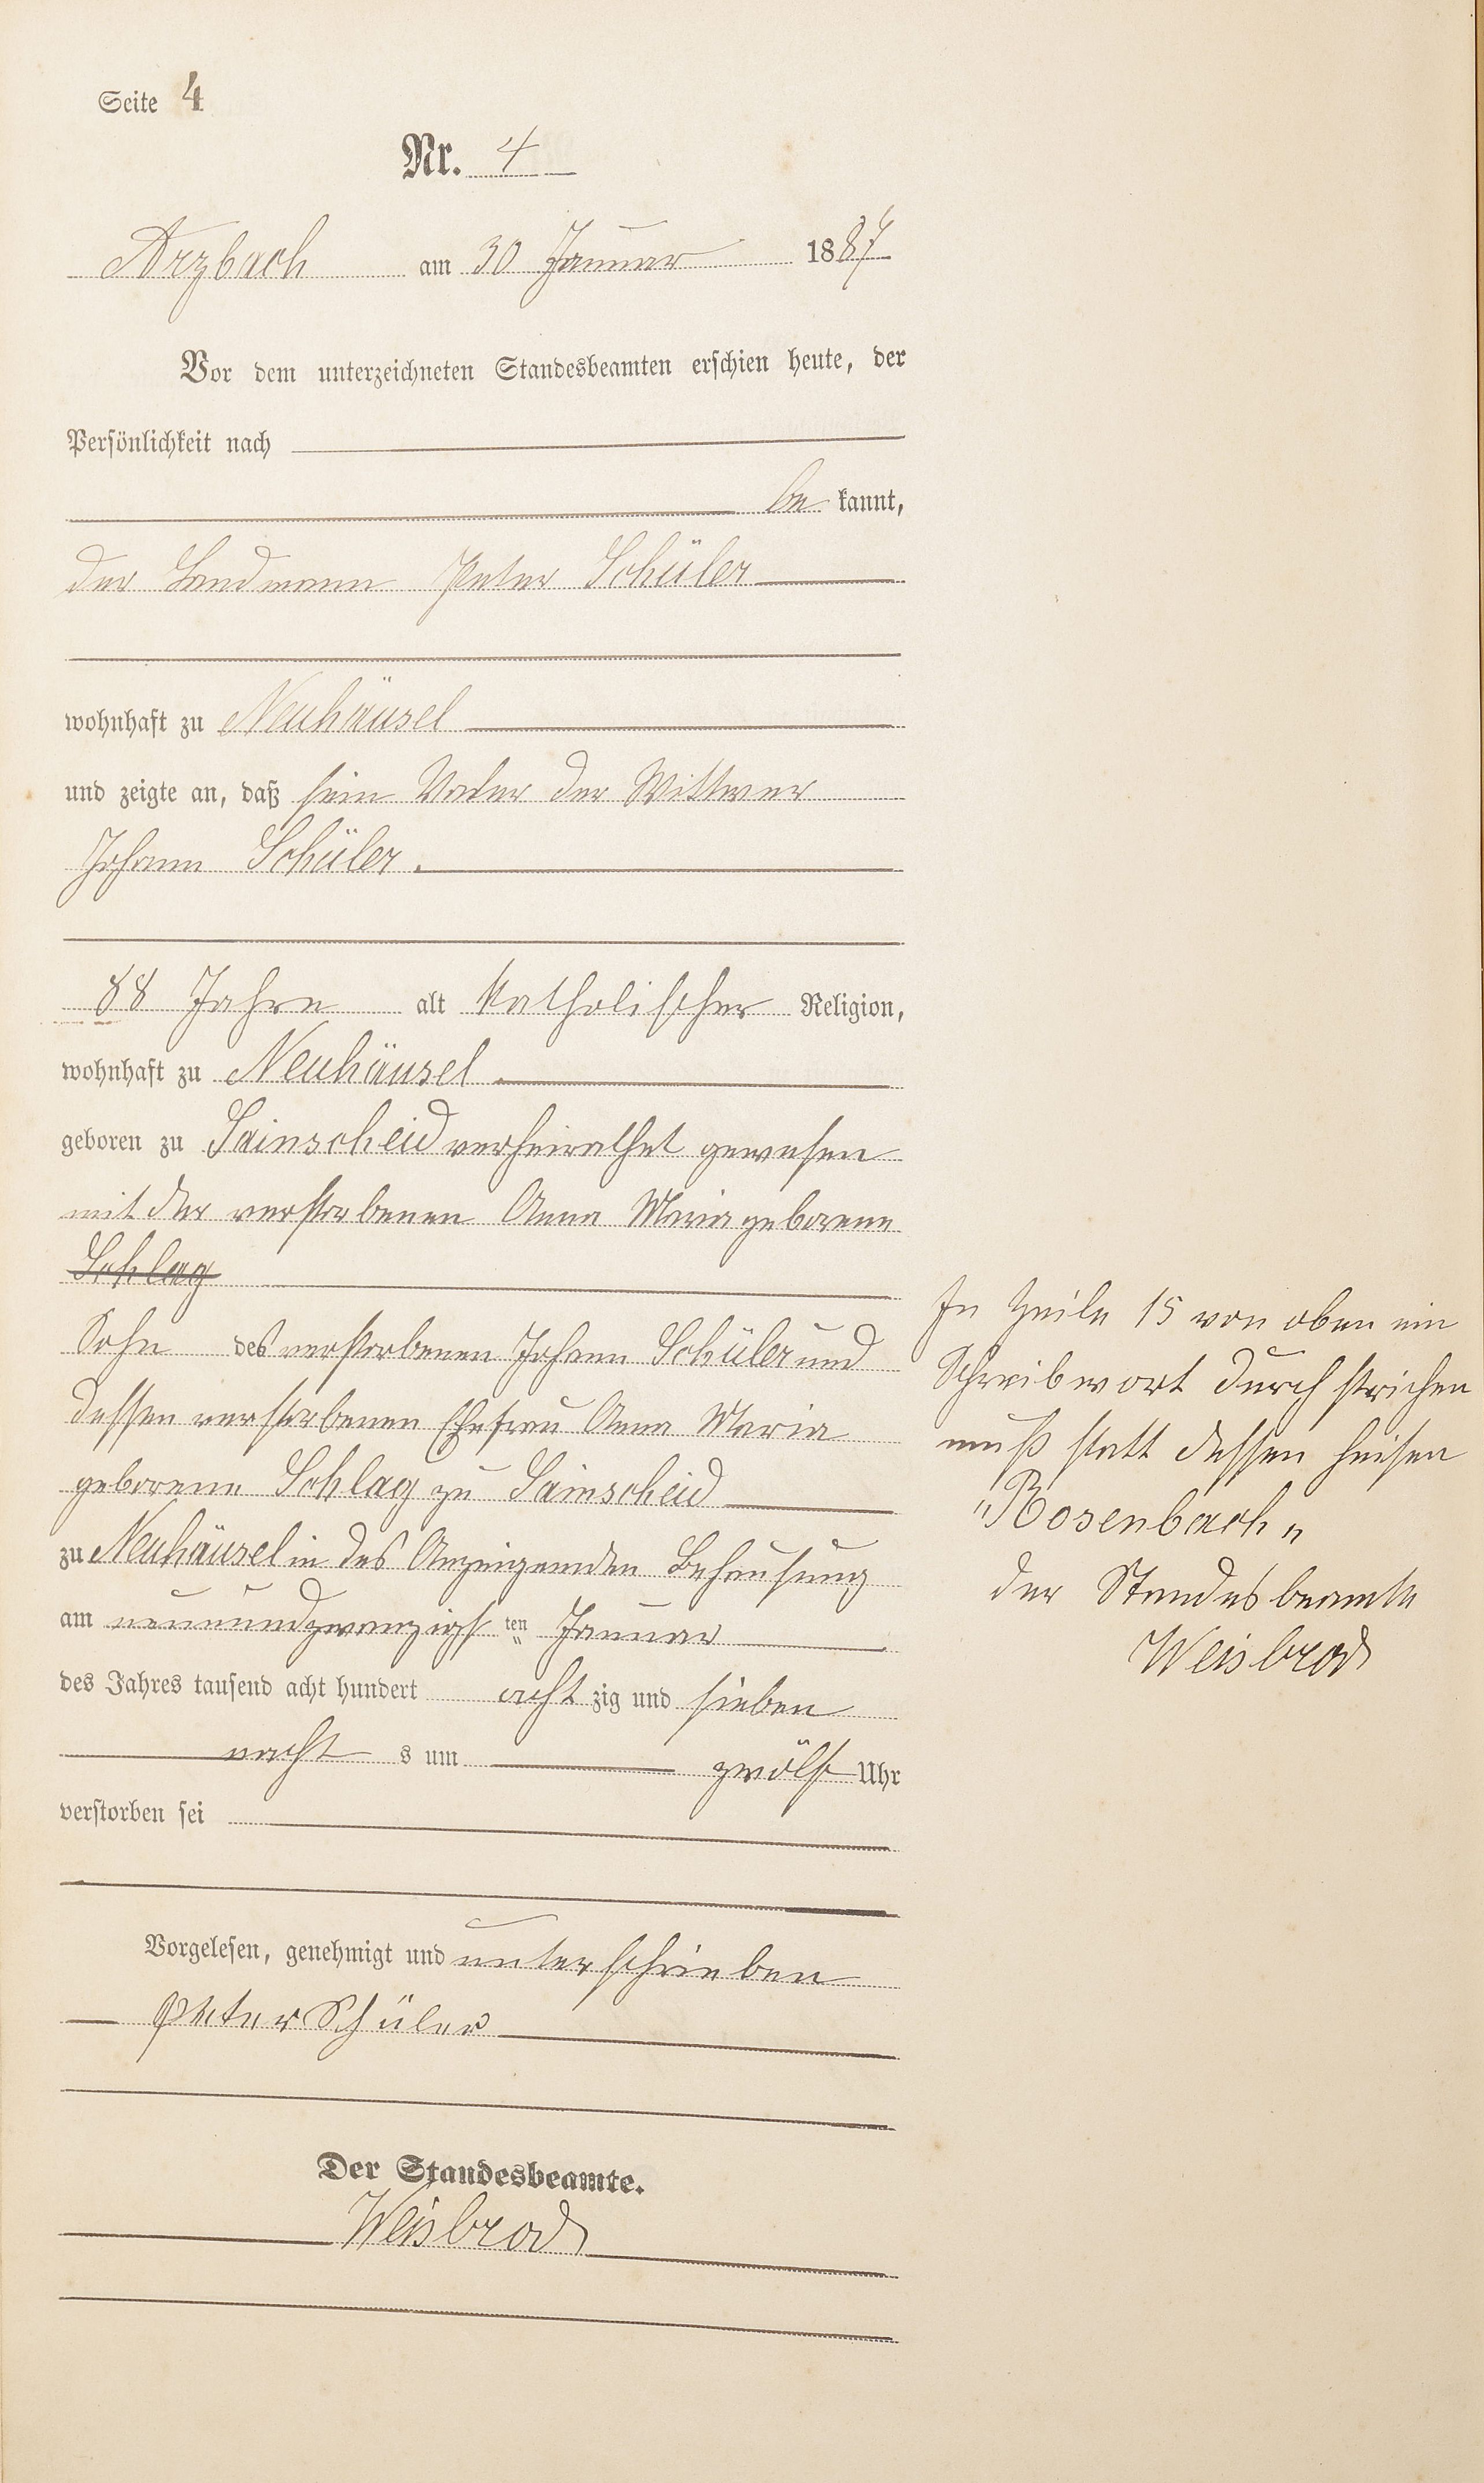 Seite 4
Nr. 4
Arzbach am 30 Januar 1887
Vor dem unterzeichneten Standesbeamten erschien heute, der
Persönlichkeit nach
be kannt,
der Landmann Peter Schüler
wohnhaft zu Neuhäusel
und zeigte an, daß sein Vater der Wittwer
Johann Schüler.
88 Jahre alt katholischer Religion,
wohnhaft zu Neuhäusel
geboren zu Sainscheid verheirathet gewesen
mit der verstorbenen Anna Maria geborene
Schlag
Sohn des verstorbenen Johann Schüler und
dessen verstorbenen Ehefrau Anna Maria
geborene Schlag zu Sainscheid
zu Neuhäusel in des Anzeigenden Behausung
am neunundzwanzigs ten Januar
des Jahres tausend acht hundert acht zig und sieben
nacht s um zwölf Uhr
verstorben sei
Vorgelesen, genehmigt und unterschrieben
Peter Schüler
Der Standesbeamte.
Weisbrod
In Zeile 15 von oben ein
Schreibwort durchstrichen
muß statt dessen heisen
"Rosenbach"
der Standesbeamte
Weisbrod